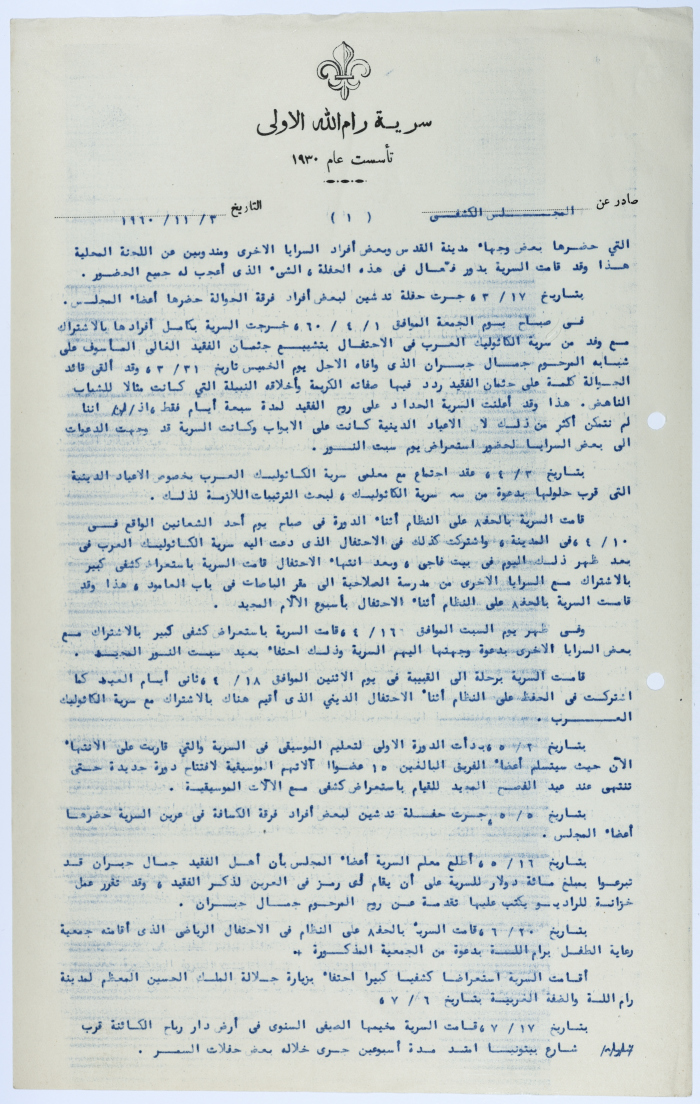 سرية رام الله الاولى
تأسست عام ١٩٣٠
صادر عن المجلس الكشفي ( ١ ) التاريخ ٣/ ١١/ ١٩٦٠
التي حضرها بعض وجهاء مدينة القدس وبعض أفراد السرايا الاخرى ومندوبين عن اللجنة المحلية
هذا وقد قامت السرية بدور فعال في هذه الحفلة ، الشيء الذى أعجب له جميع الحضور .
بتاريخ ١٧/ ٣ ، جرت حفلة تدشين لبعض أفراد فرقة الجوالة حضرها أعضاء المجلس .
في صباح يوم الجمعة الموافق ١/ ٤/ ٦٠ ، خرجت السرية بكامل أفرادها بالاشتراك
مع وفد من سرية الكاثوليك العرب في الاحتفال بتشييع جثمان الفقيد الغالى المأسوف على
شبابه المرحوم جمال جبران الذى وافاه الاجل يوم الخميس تاريخ ٣١/ ٣ ، وقد ألقى قائد
الجوالة كلمة على جثمان الفقيد ردد فيها صفاته الكريمة وأخلاقه النبيلة التي كانت مثالا للشباب
الناهض . هذا وقد أعلنت السرية الحداد على روح الفقيد لمدة سبعة أيام فقط ، اننا
لم نتمكن أكثر من ذلك لان الاعياد الدينية كانت على الابواب وكانت السرية قد وجهت الدعوات
الى بعض السرايا لحضور استعراض يوم سبت النور .
بتاريخ ٣/ ٤ ، عقد اجتماع مع معلمي سرية الكاثوليك العرب بخصوص الاعياد الدينية
التي قرب حلولها بدعوة من سرية الكاثوليك ، لبحث الترتيبات اللازمة لذلك .
قامت السرية بالحفظ على النظام أثناء الدورة في صباح يوم أحد الشعانين الواقع في
١٠/ ٤ ، في المدينة ، واشتركت كذلك في الاحتفال الذى دعت اليه سرية الكاثوليك العرب في
بعد ظهر ذلك اليوم في بيت فاجي ، وبعد انتهاء الاحتفال قامت السرية باستعراض كشفي كبير
بالاشتراك مع السرايا الاخرى من مدرسة الصلاحية الى مقر الباصات في باب العامود ، هذا وقد
قامت السرية بالحفظ على النظام أثناء الاحتفال بأسبوع الآلام المجيد .
وفي ظهر يوم السبت الموافق ١٦/ ٤ ، قامت السرية باستعراض كشفي كبير بالاشتراك مع
بعض السرايا الاخرى بدعوة وجهتها اليهم السرية وذلك احتفاء بعيد سبت النور المجيد .
قامت السرية برحلة الى القبيبة في يوم الاثنين الموافق ١٨/ ٤ ، ثاني أيام العيد كما
اشتركت في الحفظ على النظام أثناء الاحتفال الديني الذى أقيم هناك بالاشتراك مع سرية الكاثوليك
العرب .
بتاريخ ٢/ ٥ ، بدأت الدورة الاولى لتعليم الموسيقى في السرية والتي قاربت على الانتهاء
الآن حيث سيتسلم أعضاء الفريق البالغين ١٥ عضوا آلاتهم الموسيقية لافتتاح دورة جديدة حتى
تنتهى عند عيد الفصح المجيد للقيام باستعراض كشفي مع الآلات الموسيقية .
بتاريخ ٥/ ٥ ، جرت حفلة تدشين لبعض أفراد فرقة الكشافة في عرين السرية حضرها
أعضاء المجلس .
بتاريخ ١٦/ ٥ ، أطلع معلم السرية أعضاء المجلس بأن أهل الفقيد جمال جبران قد
تبرعوا بمبلغ مائة دولار للسرية على أن يقام أى رمز في العرين لذكر الفقيد ، وقد تقرر عمل
خزانة للراديو يكتب عليها تقدمة عن روح المرحوم جمال جبران .
بتاريخ ٢٠/ ٦ ، قامت السرية بالحفظ على النظام في الاحتفال الرياضي الذى أقامته جمعية
رعاية الطفل برام الله بدعوة من الجمعية المذكورة .
أقامت السرية استعراضا كشفيا كبيرا احتفاء بزيارة جلالة الملك الحسين المعظم لمدينة
رام الله والضفة الغربية بتاريخ ٦/ ٧ ،
بتاريخ ١٧/ ٧ ، قامت السرية مخيمها الصيفي السنوى في أرض دار رباح الكائنة قرب
شارع بيتونيا امتد مدة أسبوعين جرى خلاله بعض حفلات السمر .